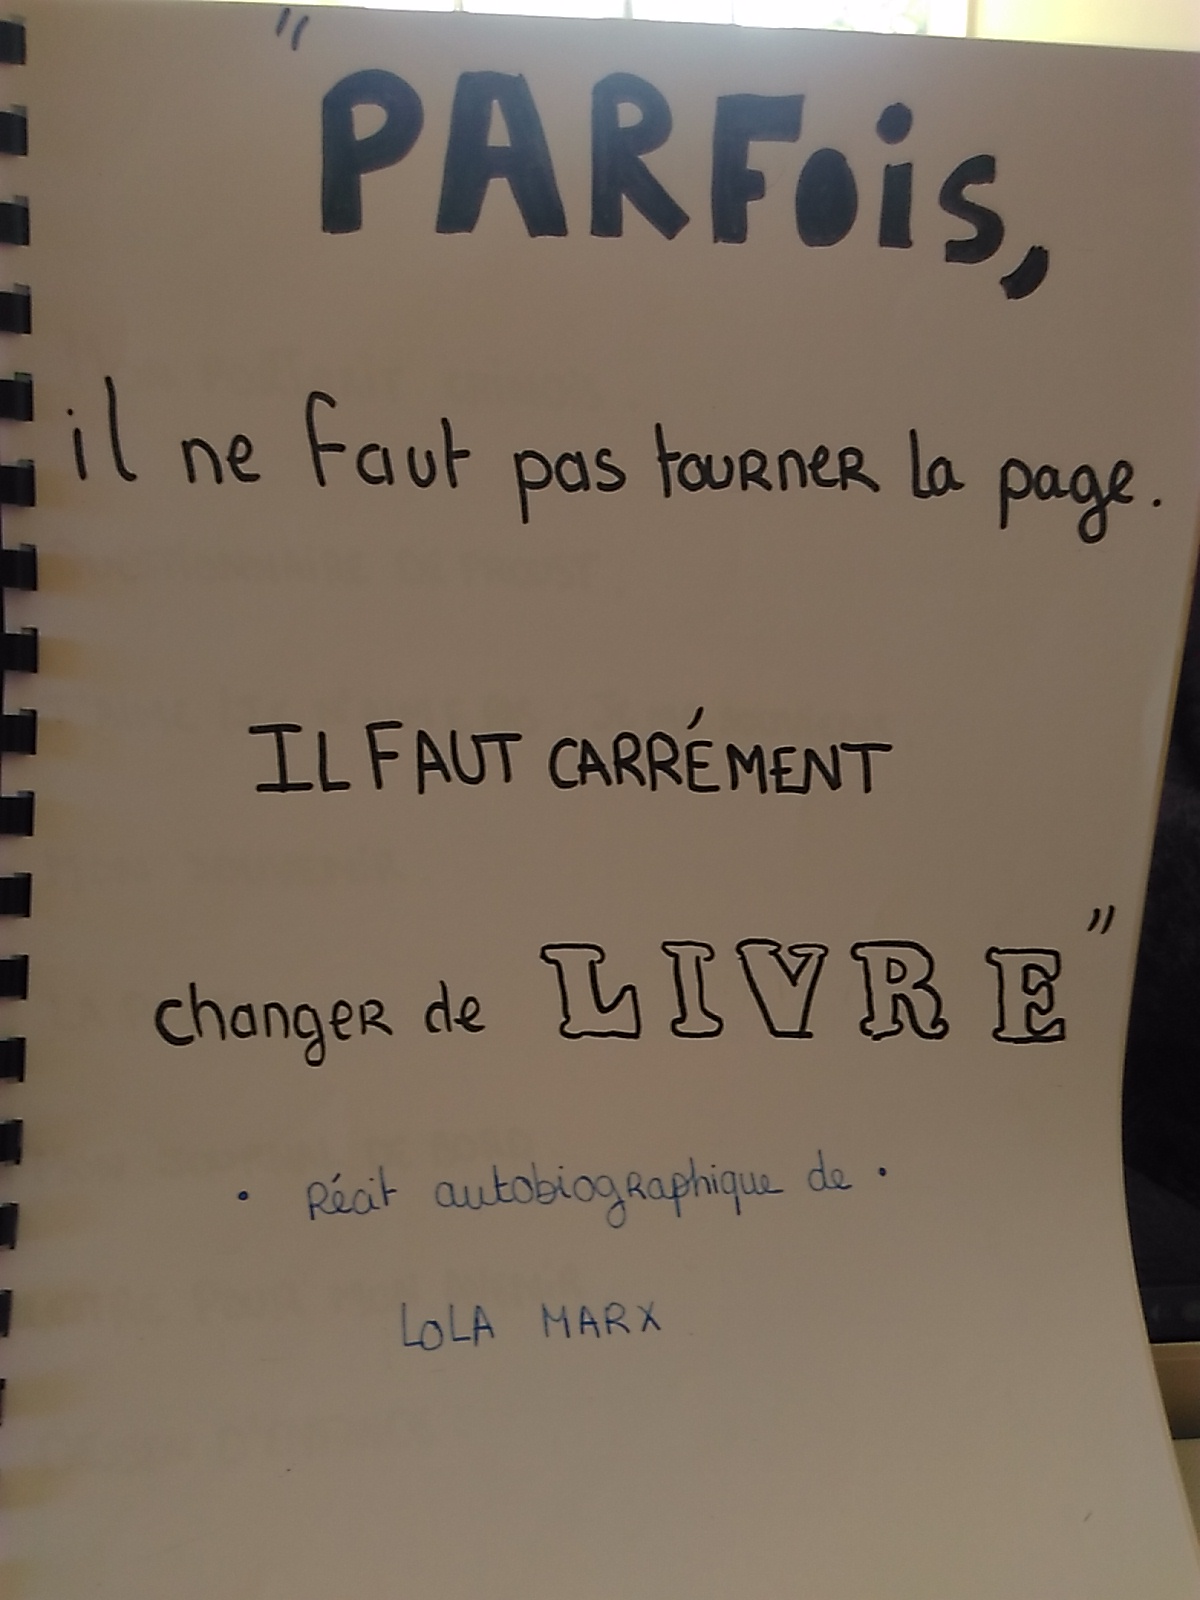 "PARFois,
il ne faut pas tourner la page.
IL FAUT CARRÉMENT
changer de LIVRE"
• Récit autobiographique de •
LOLA MARX